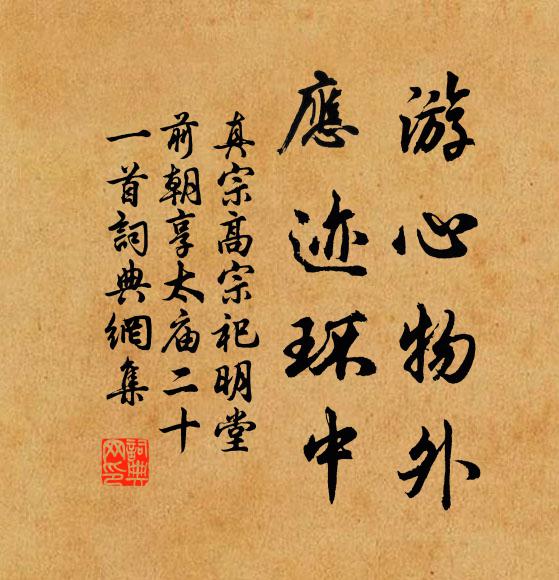 游心物外
應迹环中
真宗高宗祀明堂
前朝享太庙二十
一首詞典網集
詞典
网印